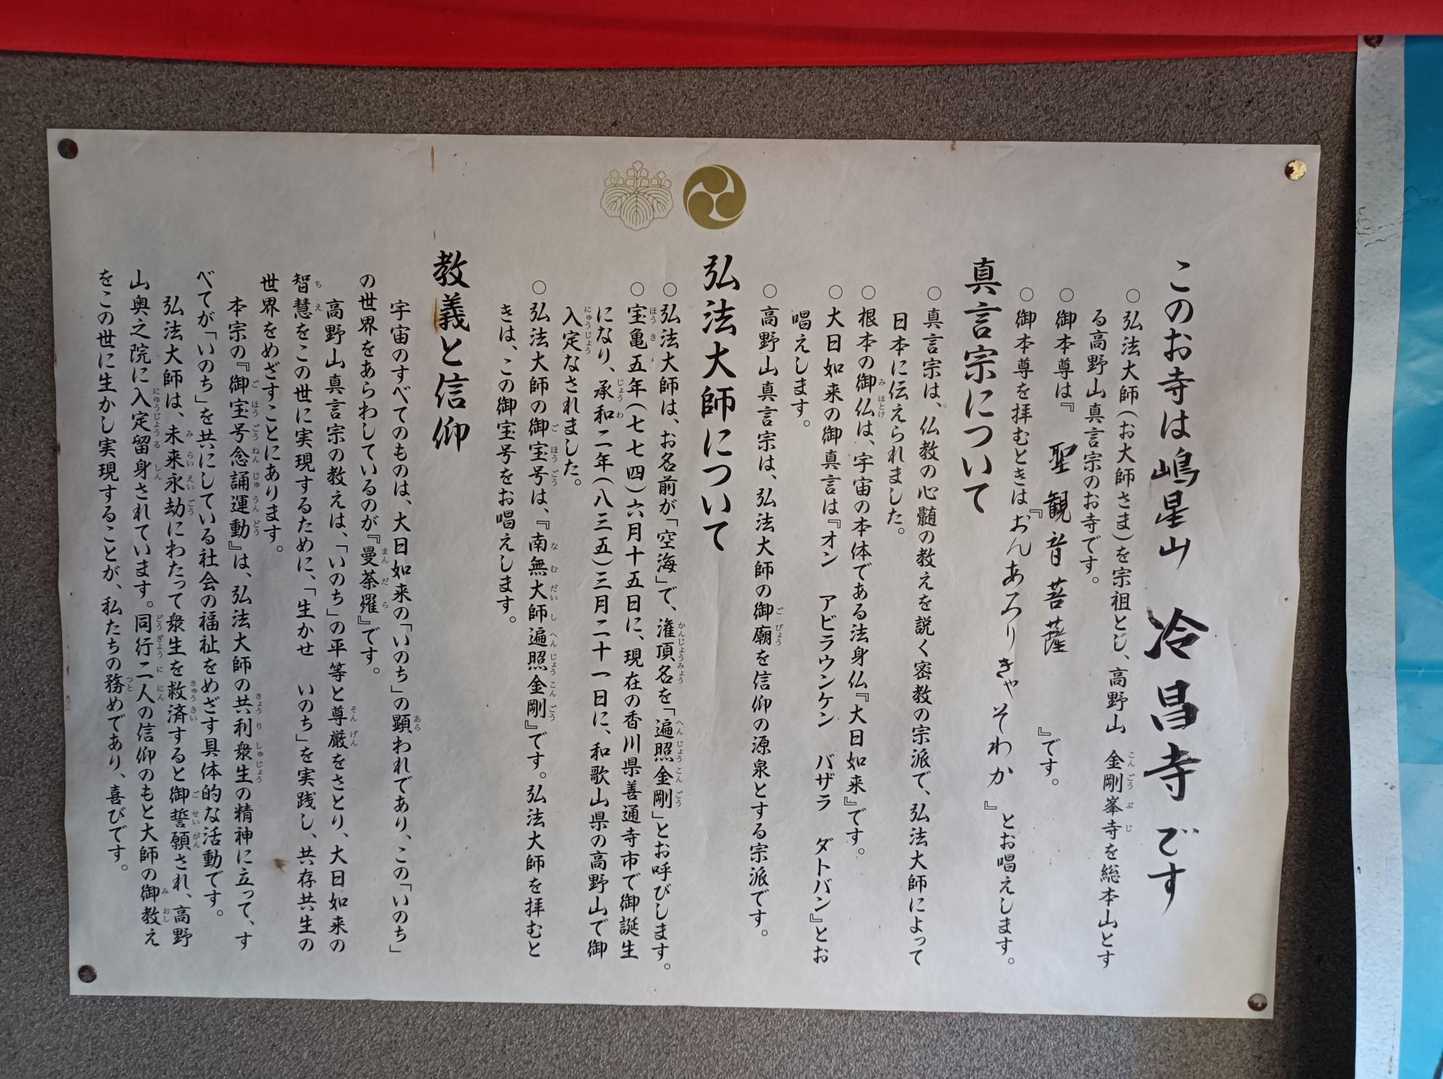 このお寺は嶋星山 冷昌寺です
○弘法大師(お大師さま)を宗祖とし、高野山 金剛峯寺を総本山とす
る高野山真言宗のお寺です。
○御本尊は『 聖観音菩薩 』です。
○御本尊を拝むときは『おんあろりきゃそわか』とお唱えします。
真言宗について
○真言宗は、仏教の心髄の教えを説く密教の宗派で、弘法大師によって
日本に伝えられました。
○根本の御仏は、宇宙の本体である法身仏『大日如来』です。
○大日如来の御真言は『オン アビラウンケン バザラ ダトバン』とお
唱えします。
○高野山真言宗は、弘法大師の御廟を信仰の源泉とする宗派です。
弘法大師について
○弘法大師は、お名前が「空海」で、灌頂名を「遍照金剛」とお呼びします。
○宝亀五年(七七四)六月十五日に、現在の香川県善通寺市で御誕生
になり、承和二年(八三五)三月二十一日に、和歌山県の高野山で御
入定なされました。
○弘法大師の御宝号は、『南無大師遍照金剛』です。弘法大師を拝むと
きは、この御宝号をお唱えします。
教義と信仰
宇宙のすべてのものは、大日如来の「いのち」の顕われであり、この「いのち」
の世界をあらわしているのが『曼荼羅』です。
高野山真言宗の教えは、「いのち」の平等と尊厳をさとり、大日如来の
智慧をこの世に実現するために、「生かせ いのち」を実践し、共存共生の
世界をめざすことにあります。
本宗の『御宝号念誦運動』は、弘法大師の共利衆生の精神に立って、す
べてが「いのち」を共にしている社会の福祉をめざす具体的な活動です。
弘法大師は、未来永劫にわたって衆生を救済すると御誓願され、高野
山奥之院に入定留身されています。同行二人の信仰のもと大師の御教え
をこの世に生かし実現することが、私たちの務めであり、喜びです。